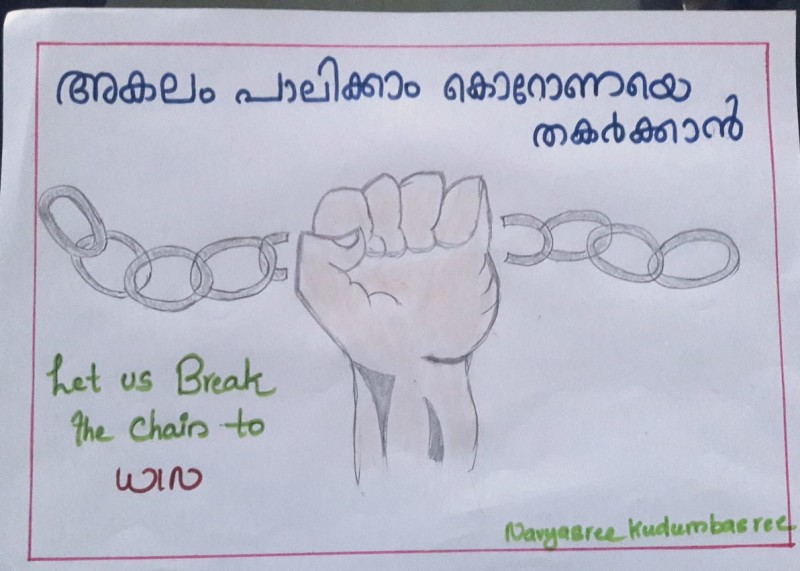 അകലം പാലിക്കാം കൊറോണയെ
തകർക്കാൻ
Let us Break
the Chain to
Navyasree Kudumbasree